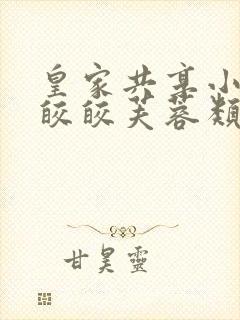 皇家共享小
皎皎芙蓉類
甘昊靈